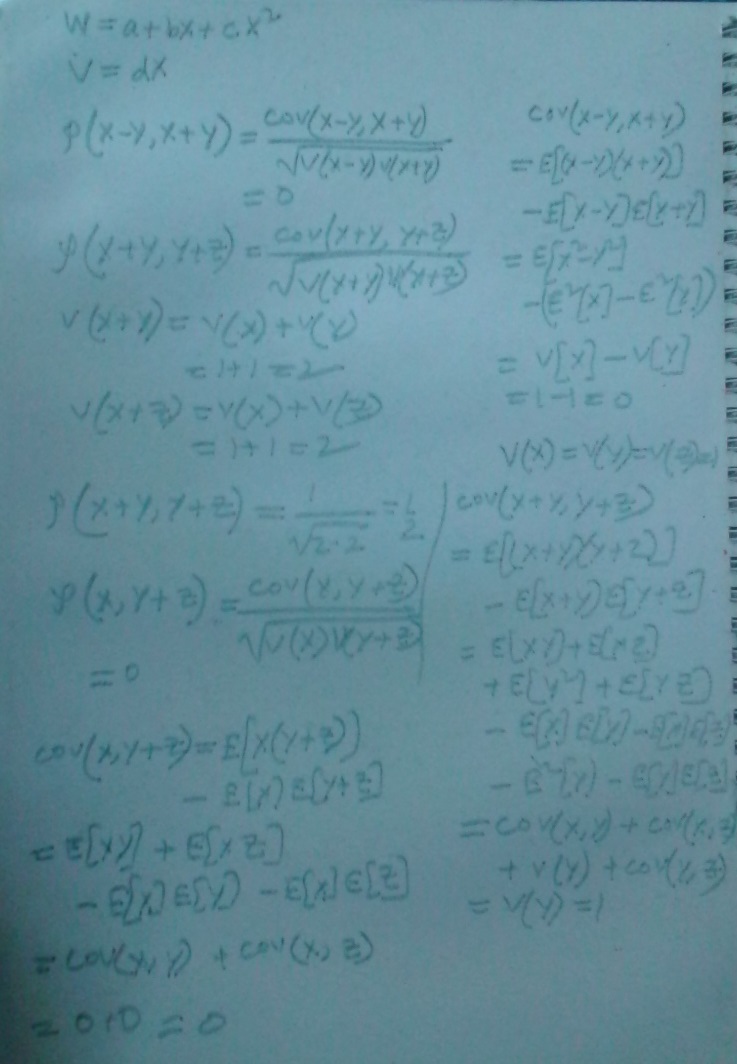 W = a + bx + cx²
V = dx
ρ(X-Y, X+Y) = cov(X-Y, X+Y) / √V(X-Y) V(X+Y)
= 0
ρ(X+Y, Y+Z) = cov(X+Y, Y+Z) / √V(X+Y) V(X+Z)
V(X+Y) = V(X) + V(Y)
= 1+1 = 2
V(X+Z) = V(X) + V(Z)
= 1+1 = 2
ρ(X+Y, Y+Z) = 1/√2·2 = 1/2
ρ(X, Y+Z) = cov(X, Y+Z) / √V(X) V(Y+Z)
= 0
cov(X, Y+Z) = E[X(Y+Z)]
- E[X] E[Y+Z]
= E[XY] + E[XZ]
- E[X] E[Y] - E[X] E[Z]
= cov(X, Y) + cov(X, Z)
= 0+0 = 0
cov(X-Y, X+Y)
= E[(X-Y)(X+Y)]
- E[X-Y] E[X+Y]
= E[X²-Y²]
- (E²[X] - E²[Y])
= V[X] - V[Y]
= 1-1 = 0
V(X) = V(Y) = V(Z) = 1
cov(X+Y, Y+Z)
= E[(X+Y)(Y+Z)]
- E[X+Y] E[Y+Z]
= E[XY] + E[XZ]
+ E[Y²] + E[YZ]
- E[X] E[Y] - E[X] E[Z]
- E²[Y] - E[Y] E[Z]
= cov(X, Y) + cov(X, Z)
+ V(Y) + cov(Y, Z)
= V(Y) = 1